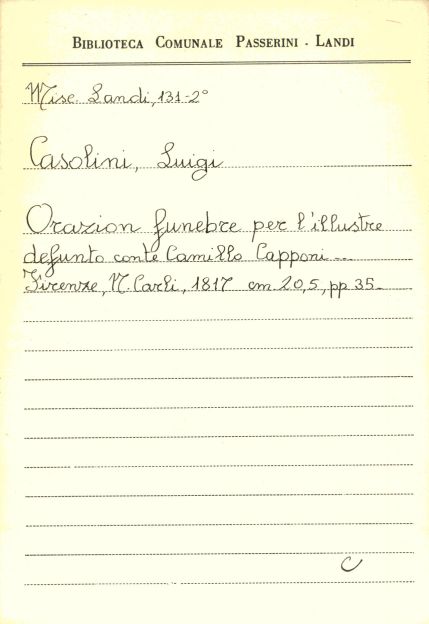 BIBLIOTECA COMUNALE PASSERINI - LANDI
Misc. Landi, 131-2°
Casolini, Luigi
Orazion funebre per l'illustre
defunto conte Camillo Capponi...
Firenze, N. Carli, 1817 cm. 20,5, pp 35-
C